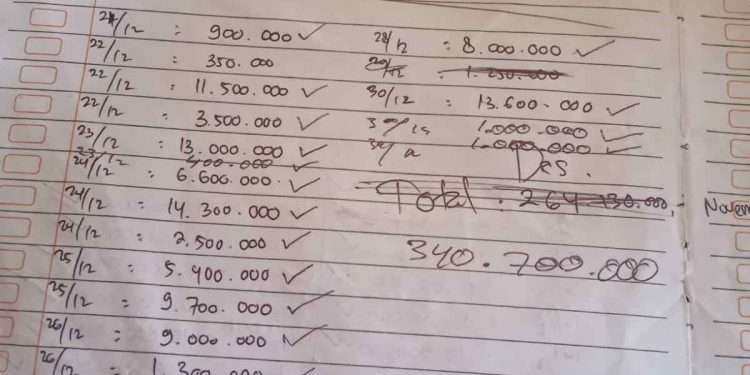 21/12 : 900.000 ✓
22/12 : 350.000
22/12 : 11.500.000 ✓
22/12 : 3.500.000 ✓
23/12 : 13.000.000 ✓
23/12 400.000
24/12 : 6.600.000 ✓
24/12 : 14.300.000 ✓
24/12 : 2.500.000 ✓
25/12 : 5.400.000 ✓
25/12 : 9.700.000 ✓
26/12 : 9.000.000 ✓
26/12 : 1.300.000
28/12 : 8.000.000 ✓
29/12 : 1.250.000
30/12 : 13.600.000 ✓
1.000.000 ✓
1.000.000 ✓
Des.
Total : 264.730.000,-
340.700.000
Novem